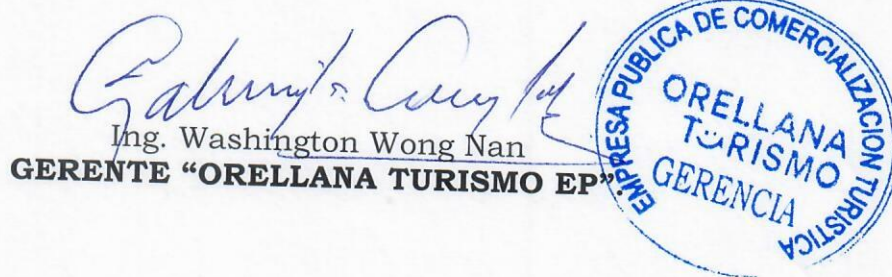 Ing. Washington Wong Nan
GERENTE “ORELLANA TURISMO EP”.
EMPRESA PUBLICA DE COMERCIALIZACION TURISTICA
ORELLANA
TURISMO
GERENCIA